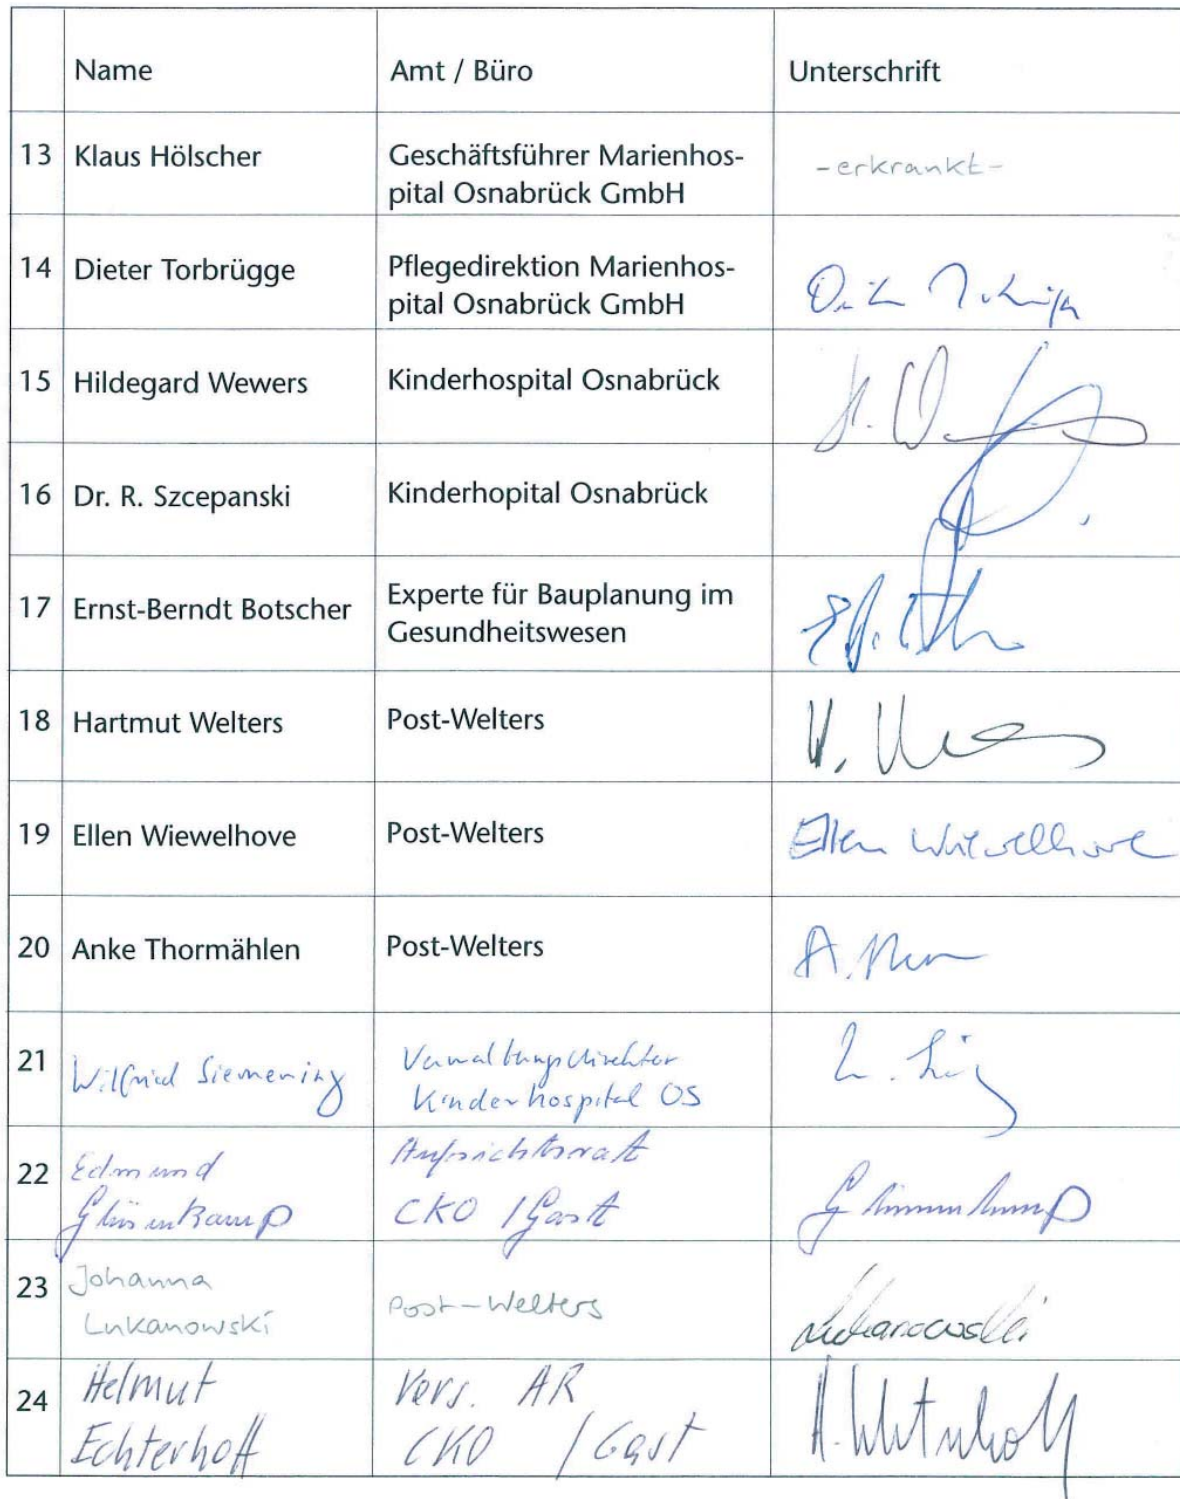 Name Amt / Büro Unterschrift
13 Klaus Hölscher Geschäftsführer Marienhos-
pital Osnabrück GmbH
-erkrankt-
14 Dieter Torbrügge Pflegedirektion Marienhos-
pital Osnabrück GmbH
15 Hildegard Wewers Kinderhospital Osnabrück
16 Dr. R. Szcepanski Kinderhopital Osnabrück
17 Ernst-Berndt Botscher Experte für Bauplanung im
Gesundheitswesen
18 Hartmut Welters Post-Welters
19 Ellen Wiewelhove Post-Welters Ellen Wiewelhove
20 Anke Thormählen Post-Welters
21 Wilfried Siemering Verwaltungsdirektor
Kinderhospital OS
22 Edmund Aufsichtsrat
Glüsenkamp CKO / Gast
23 Johanna
Lukanowski Post-Welters Lukanowski
24 Helmut Vors. AR
Echterhoff CKO / Gast H. Echterhoff